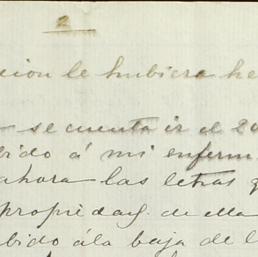 2
cion le hubiera he
se cuenta ir el 29
bido á mi enferm
ahora las letras q
propiedad de ella
bido ála baja de l